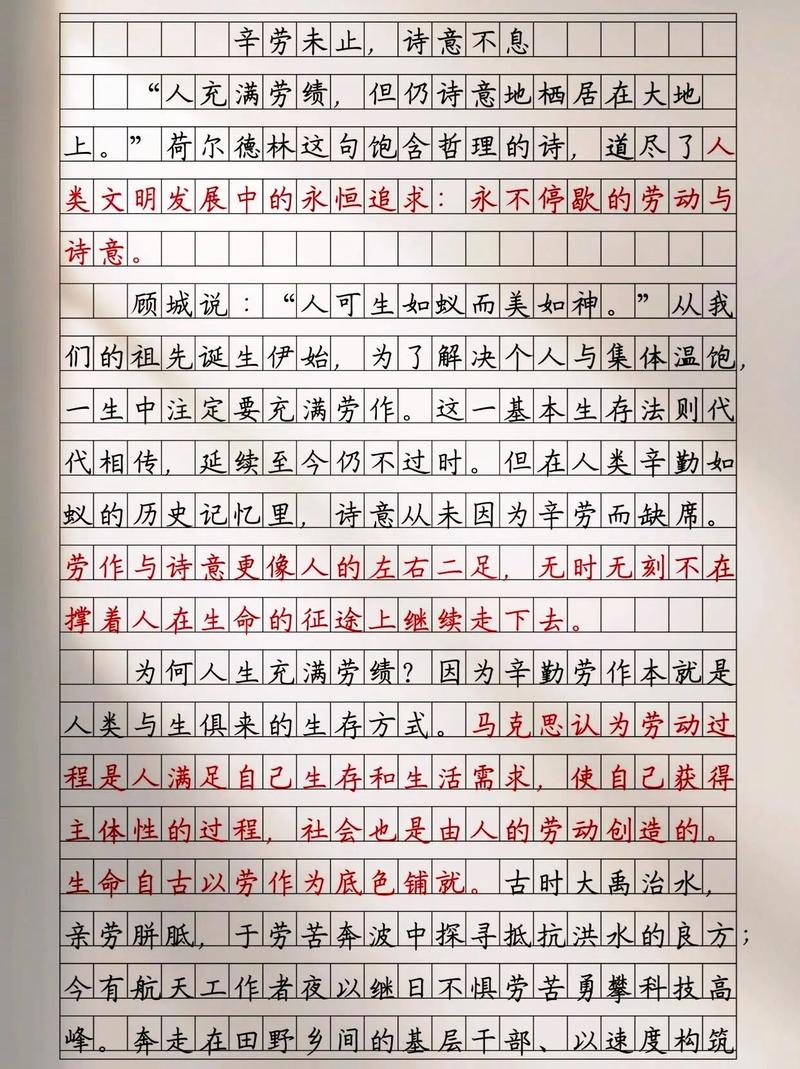 辛劳未止，诗意不息
“人充满劳绩，但仍诗意地栖居在大地
上。”荷尔德林这句饱含哲理的诗，道尽了人
类文明发展中的永恒追求：永不停歇的劳动与
诗意。
顾城说：“人可生如蚁而美如神。”从我
们的祖先诞生伊始，为了解决个人与集体温饱，
一生中注定要充满劳作。这一基本生存法则代
代相传，延续至今仍不过时。但在人类辛勤如
蚁的历史记忆里，诗意从未因为辛劳而缺席。
劳作与诗意更像人的左右二足，无时无刻不在
撑着人在生命的征途上继续走下去。
为何人生充满劳绩？因为辛勤劳作本就是
人类与生俱来的生存方式。马克思认为劳动过
程是人满足自己生存和生活需求，使自己获得
主体性的过程，社会也是由人的劳动创造的。
生命自古以劳作为底色铺就。古时大禹治水，
亲劳胼胝，于劳苦奔波中探寻抵抗洪水的良方；
今有航天工作者夜以继日不惧劳苦勇攀科技高
峰。奔走在田野乡间的基层干部、以速度构筑